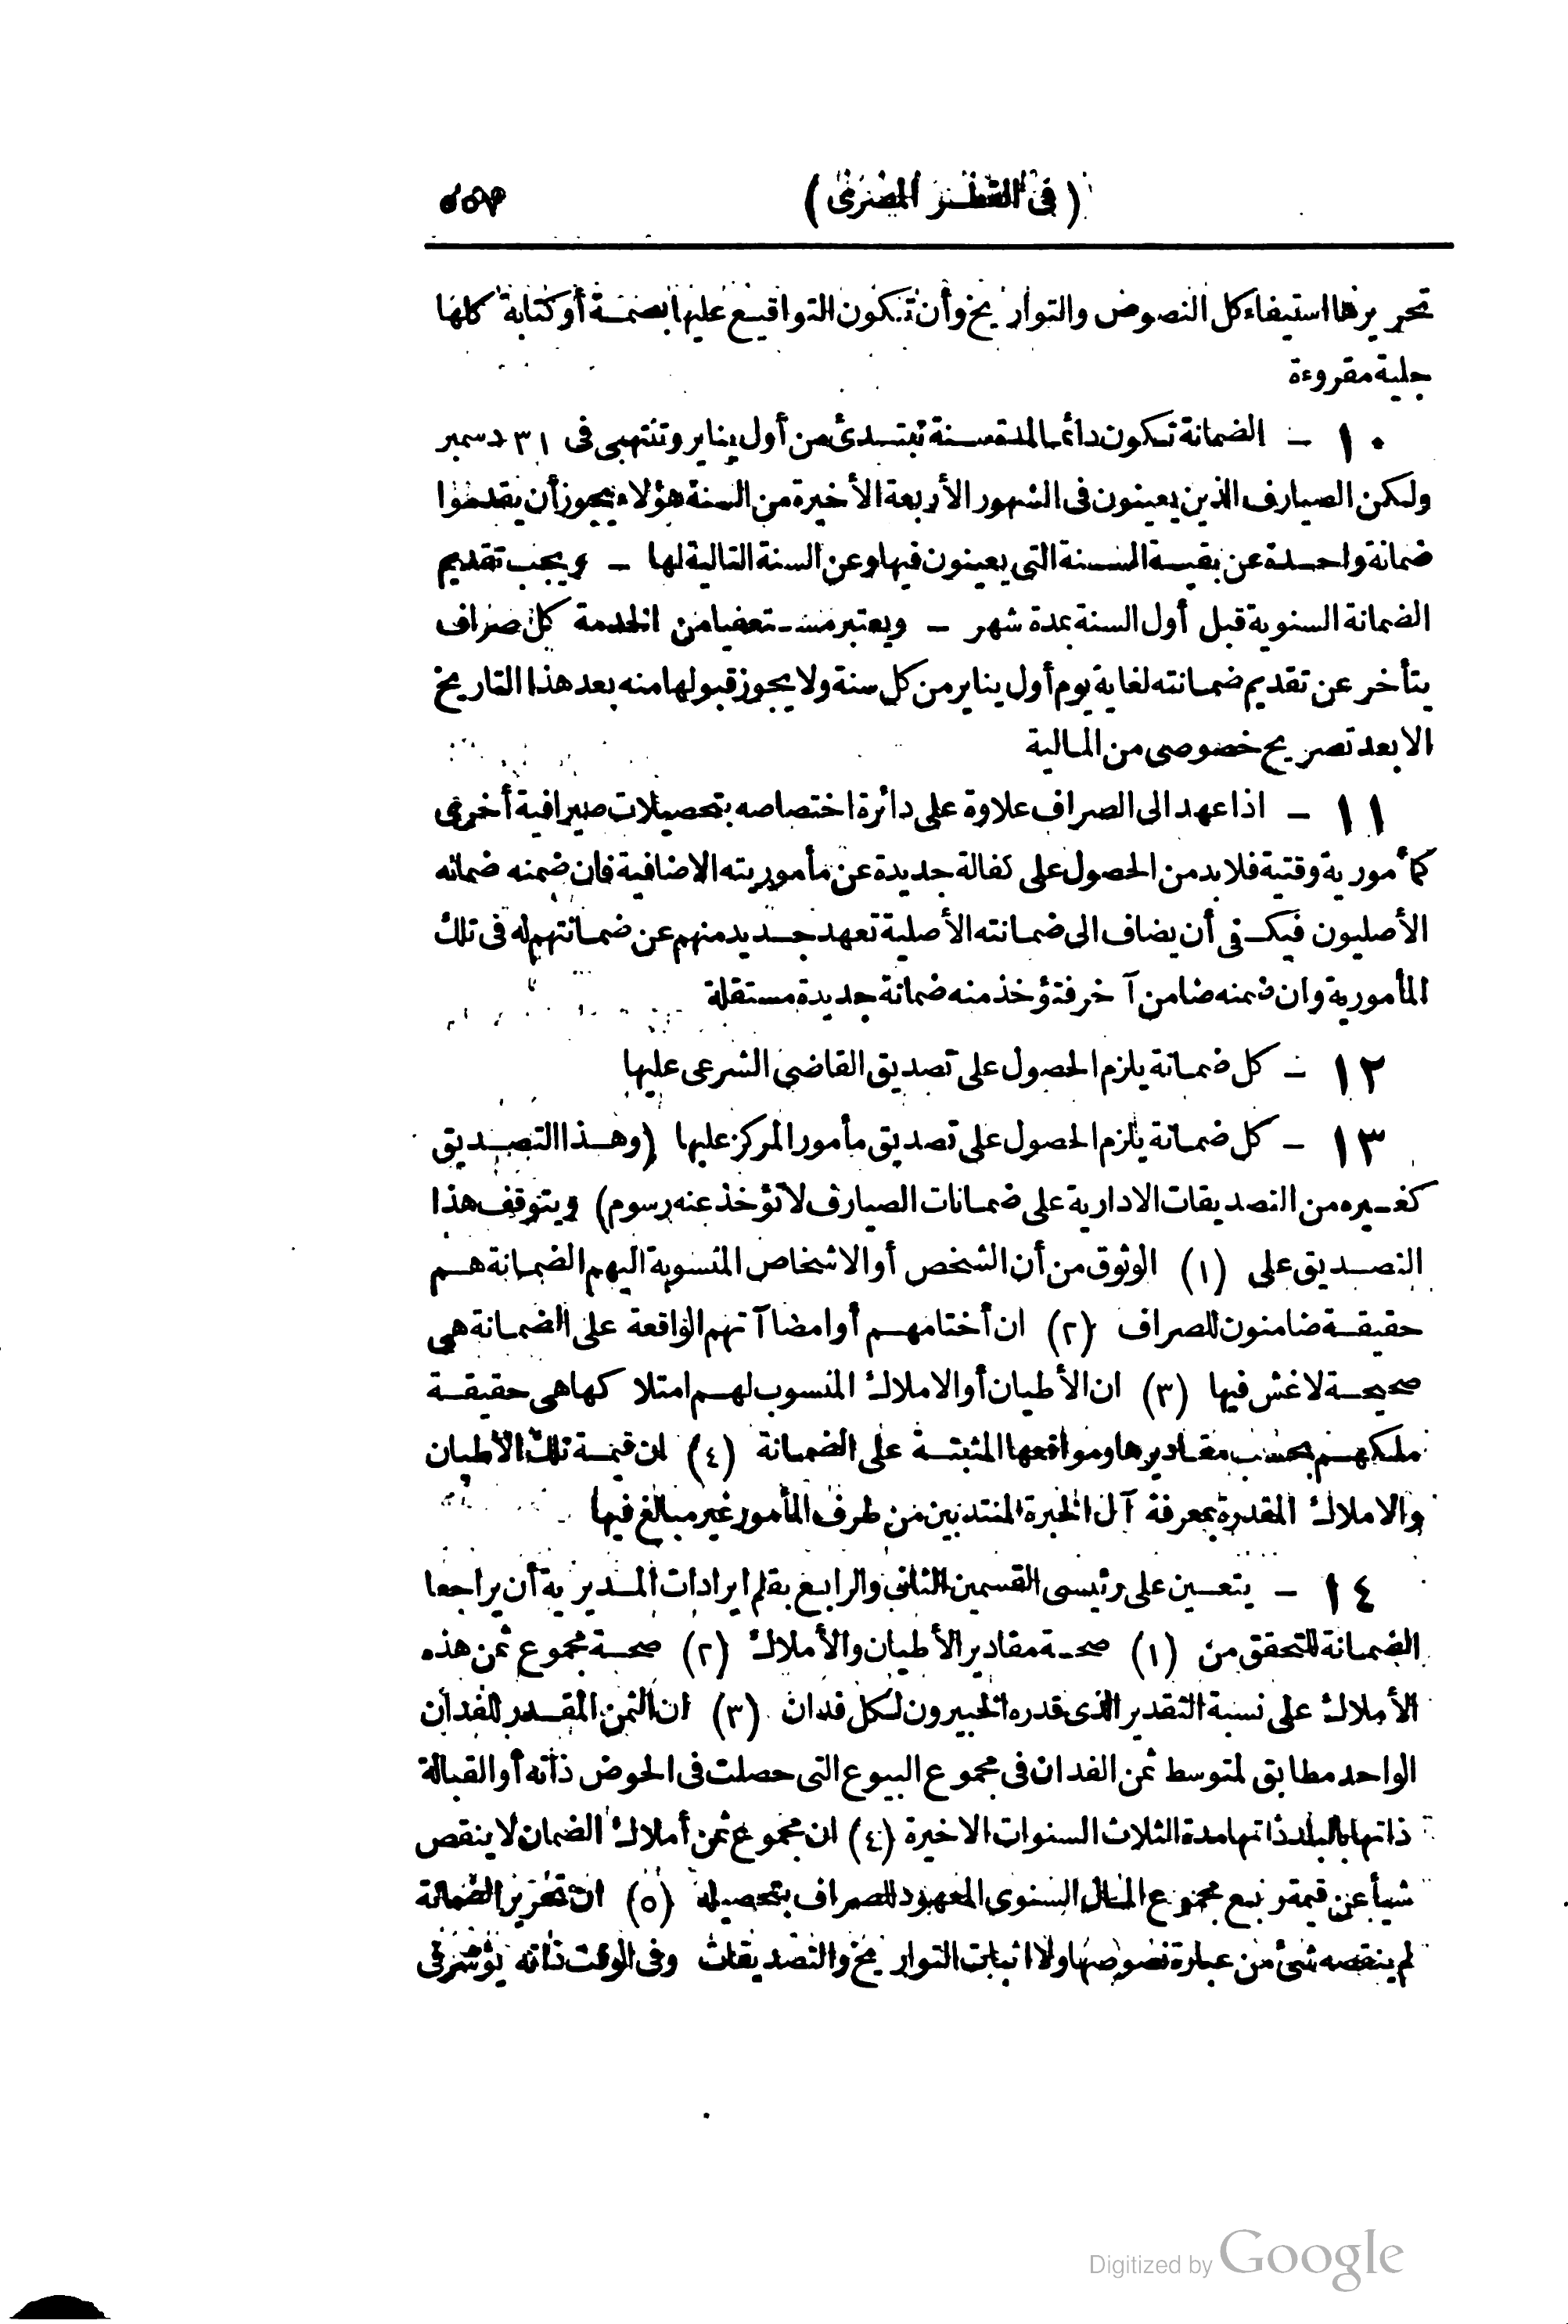 (فى القطر المصرى)
تحريرها استيفاء كل النصوص والتواريخ وأن تكون التواقيع عليها بصمة أو كتابة كلها
جلية مقروءة
١٠ – الضمانة تكون دائما لمدة سنة تبتدئ من أول يناير وتنتهى فى ٣١ دسمبر
ولكن الصيارف الذين يعينون فى الشهور الأربعة الأخيرة من السنة هؤلاء يجوز أن يقدموا
ضمانة واحدة عن بقية السنة التى يعينون فيها وعن السنة التالية لها – ويجب تقديم
الضمانة السنوية قبل أول السنة بمدة شهر – ويعتبر مستعفيا من الخدمة كل صراف
يتأخر عن تقديم ضمانته لغاية يوم أول يناير من كل سنة ولا يجوز قبولها منه بعد هذا التاريخ
الا بعد تصريح خصوصى من المالية
١١ – اذا عهد الى الصراف علاوة على دائرة اختصاصه بتحصيلات صيرافية أخرى
كمأمورية وقتية فلا بد من الحصول على كفالة جديدة عن مأموريته الاضافية فان ضمنه ضمانه
الأصليون فيكفى أن يضاف الى ضمانته الأصلية تعهد جديد منهم عن ضمانتهم له فى تلك
المأمورية وان ضمنه ضامن آخر فتؤخذ منه ضمانة جديدة مستقلة
١٢ – كل ضمانة يلزم الحصول على تصديق القاضى الشرعى عليها
١٣ – كل ضمانة يلزم الحصول على تصديق مأمور المركز عليها (وهذا التصديق
كغيره من التصديقات الادارية على ضمانات الصيارف لا تؤخذ عنه رسوم) ويتوقف هذا
التصديق على (١) الوثوق من أن الشخص أو الاشخاص المنسوبة اليهم الضمانة هم
حقيقة ضامنون للصراف (٢) ان أختامهم أو امضاآتهم الواقعة على الضمانة هى
صحيحة لا غش فيها (٣) ان الأطيان أو الاملاك المنسوب لهم امتلاكها هى حقيقة
ملكهم بحسب مقاديرها ومواقعها المثبتة على الضمانة (٤) ان قيمة تلك الأطيان
والاملاك المقدرة بمعرفة آل الخبرة المنتدبين من طرف المأمور غير مبالغ فيها
١٤ – يتعين على رئيسى القسمين الثانى والرابع بقلم ايرادات المديرية أن يراجعا
الضمانة للتحقق من (١) صحة مقادير الأطيان والأملاك (٢) صحة مجموع ثمن هذه
الأملاك على نسبة التقدير الذى قدره الخبيرون لكل فدان (٣) ان الثمن المقدر للفدان
الواحد مطابق لمتوسط ثمن الفدان فى مجموع البيوع التى حصلت فى الحوض ذاته أو القبالة
ذاتها بالبلد ذاتها مدة الثلاث السنوات الاخيرة (٤) ان مجموع ثمن أملاك الضمان لا ينقص
شيأ عن قيمة ربع مجموع المال السنوى المعهود للصراف بتحصيله (٥) ان تحرير الضمانة
لم ينقصه شئ من عبارة نصوصها ولا اثبات التواريخ والتصديقات وفى الوقت ذاته يؤشر فى
Digitized by Google